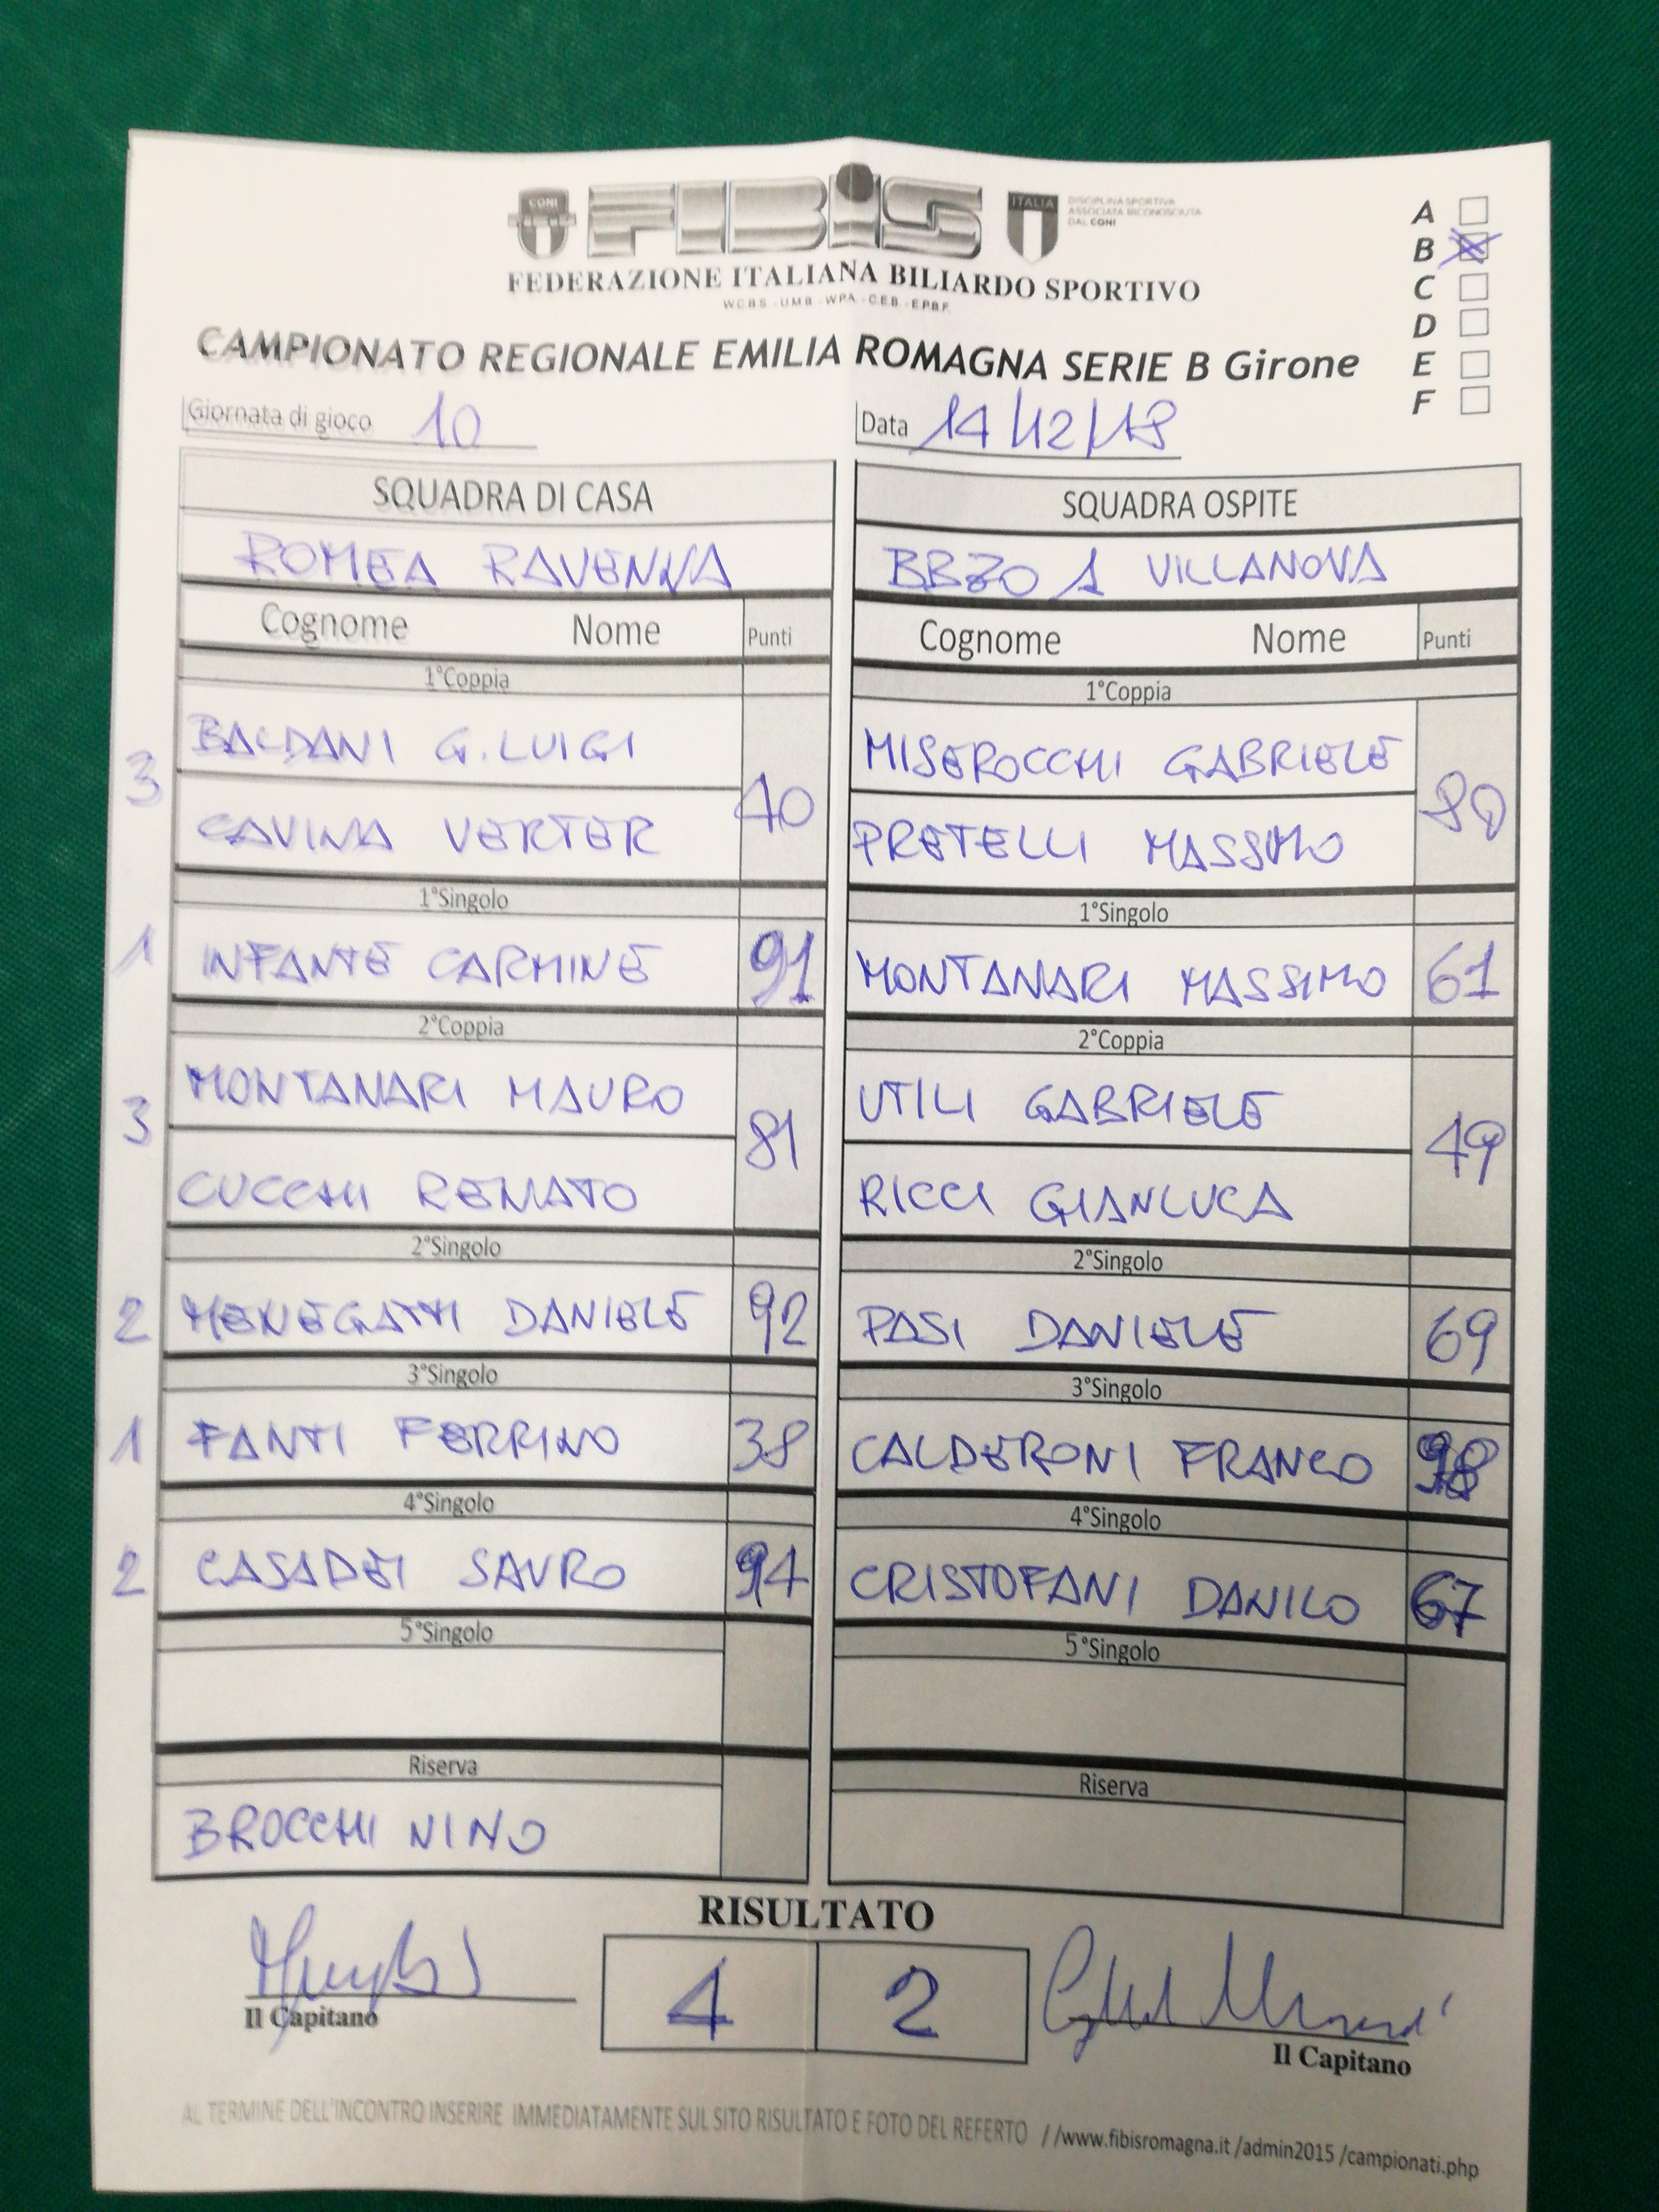 CONI
FIBiS
ITALIA
DISCIPLINA SPORTIVA
ASSOCIATA RICONOSCIUTA
DAL CONI
FEDERAZIONE ITALIANA BILIARDO SPORTIVO
WCBS - UMB - WPA - CEB - EPBF
A
B
C
D
E
F
CAMPIONATO REGIONALE EMILIA ROMAGNA SERIE B Girone
Giornata di gioco 10
Data 14/12/18
SQUADRA DI CASA SQUADRA OSPITE
ROMEA RAVENNA VILLANOVA
Cognome Nome Punti Cognome Nome Punti
1°Coppia 1°Coppia
BALDANI G. LUIGI MISEROCCHI GABRIELE
3 40 80
CAVINA VERTER PRETELLI MASSIMO
1°Singolo 1°Singolo
1 INFANTE CARMINE 91 MONTANARI MASSIMO 61
2°Coppia 2°Coppia
MONTANARI MAURO UTILI GABRIELE
3 81 49
CUCCHI RENATO RICCI GIANLUCA
2°Singolo 2°Singolo
2 MENEGATTI DANIELE 92 PASI DANIELE 69
3°Singolo 3°Singolo
1 FANTI FERRINO 38 CALDERONI FRANCO 98
4°Singolo 4°Singolo
2 CASADEI SAURO 94 CRISTOFANI DANILO 67
5°Singolo 5°Singolo
Riserva Riserva
BROCCHI NINO
RISULTATO
4 2
Il Capitano Il Capitano
AL TERMINE DELL'INCONTRO INSERIRE IMMEDIATAMENTE SUL SITO RISULTATO E FOTO DEL REFERTO //www.fibisromagna.it /admin2015 /campionati.php